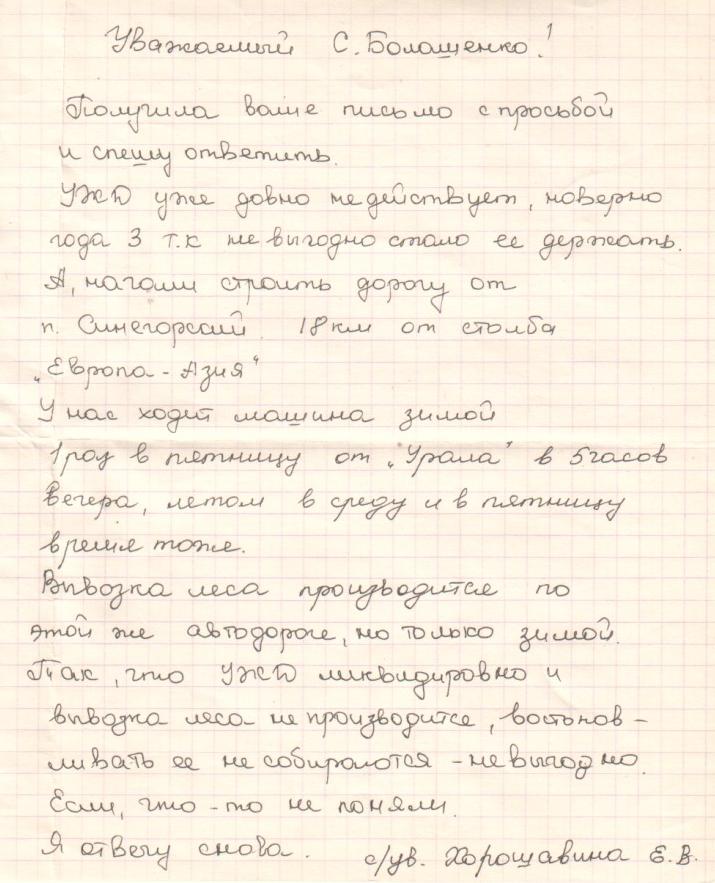 Уважаемый С. Болашенко!
Получила ваше письмо с просьбой
и спешу ответить.
УЖД уже довно не действует, наверно
года 3 т.к не выгодно стало ее держать.
А, начали строить дорогу от
п. Синегорский 18 км от столба
„Европа - Азия"
У нас ходит машина зимой
1 раз в пятницу от „Урала" в 5 часов
вечера, летом в среду и в пятницу
время тоже.
Вывозка леса производится по
этой же автодороге, но только зимой.
Так, что УЖД ликвидировно и
вывозка леса не производится, востонов-
ливать ее не собираются - не выгодно.
Если, что-то не поняли.
Я отвечу снова. с/ув. Хорошавина Е.В.